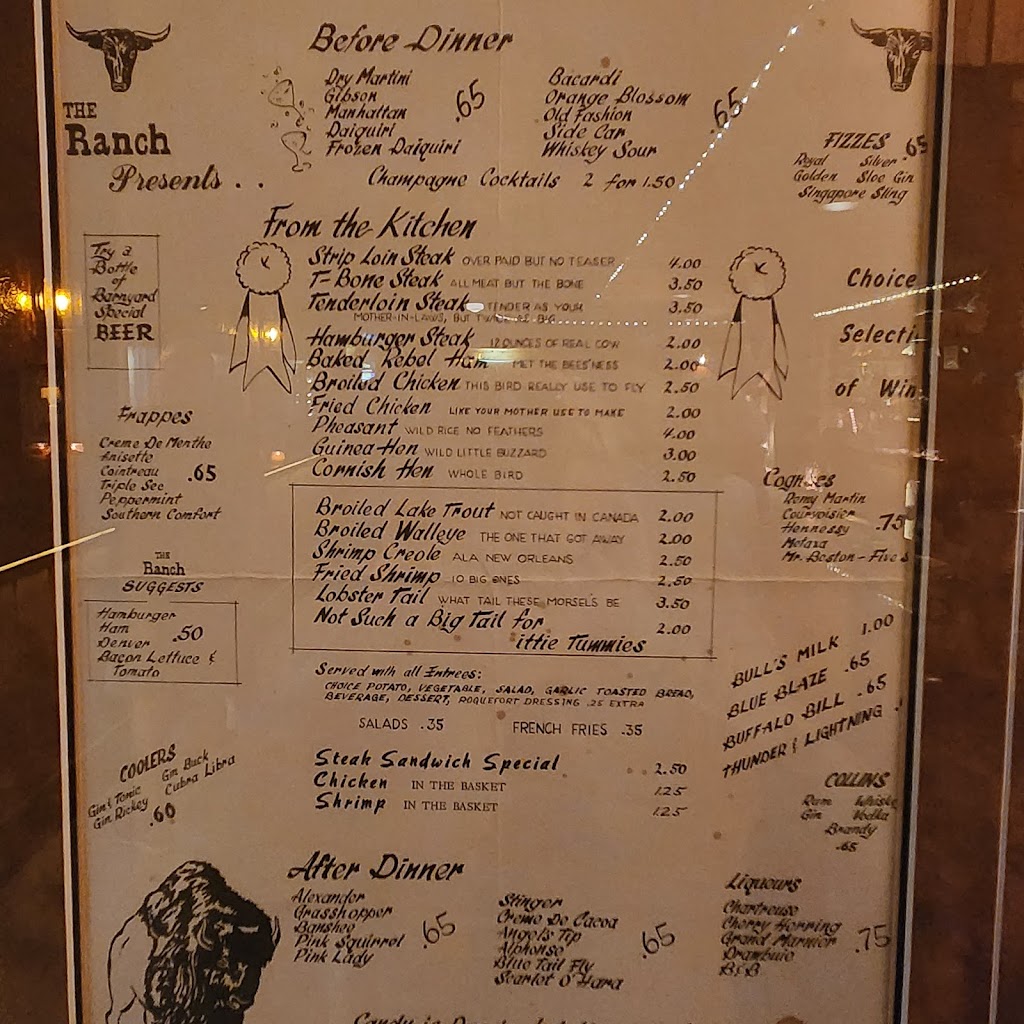 THE
Ranch
Presents . .
Before Dinner
Dry Martini
Gibson
Manhattan
Daiquiri
Frozen Daiquiri
.65
Bacardi
Orange Blossom
Old Fashion
Side Car
Whiskey Sour
.65
Champagne Cocktails 2 for 1.50
FIZZES .65
Royal Silver
Golden Sloe Gin
Singapore Sling
Try a
Bottle
of
Barnyard
Special
BEER
From the Kitchen
Strip Loin Steak OVER PAID BUT NO TEASER 4.00
T-Bone Steak ALL MEAT BUT THE BONE 3.50
Tenderloin Steak TENDER AS YOUR 3.50
MOTHER-IN-LAWS, BUT TWICE AS BIG
Hamburger Steak 12 OUNCES OF REAL COW 2.00
Baked Rebel Ham MET THE BEES'NESS 2.00
Broiled Chicken THIS BIRD REALLY USE TO FLY 2.50
Fried Chicken LIKE YOUR MOTHER USE TO MAKE 2.00
Pheasant WILD RICE NO FEATHERS 4.00
Guinea Hen WILD LITTLE BUZZARD 3.00
Cornish Hen WHOLE BIRD 2.50
Broiled Lake Trout NOT CAUGHT IN CANADA 2.00
Broiled Walleye THE ONE THAT GOT AWAY 2.00
Shrimp Creole ALA NEW ORLEANS 2.50
Fried Shrimp 10 BIG ONES 2.50
Lobster Tail WHAT TAIL THESE MORSEL'S BE 3.50
Not Such a Big Tail for 2.00
ittie Tummies
Served with all Entrees:
CHOICE POTATO, VEGETABLE, SALAD, GARLIC TOASTED BREAD,
BEVERAGE, DESSERT, ROQUEFORT DRESSING .25 EXTRA
SALADS .35 FRENCH FRIES .35
Steak Sandwich Special 2.50
Chicken IN THE BASKET 1.25
Shrimp IN THE BASKET 1.25
Choice
Selecti
of Win
Frappes
Creme De Menthe
Anisette
Cointreau
Triple Sec
Peppermint
Southern Comfort
.65
THE
Ranch
SUGGESTS
Hamburger
Ham
Denver
Bacon Lettuce &
Tomato
.50
COOLERS
Gin & Tonic Gin Buck
Gin Rickey Cubra Libra
.60
Remy Martin
Courvoisier
Hennessy
Metaxa
Mr. Boston - Five S
.75
BULL'S MILK 1.00
BLUE BLAZE .65
BUFFALO BILL .65
THUNDER & LIGHTNING
COLLINS
Rum Whiske
Gin Vodka
Brandy
.65
After Dinner
Alexander
Grasshopper
Banshee
Pink Squirrel
Pink Lady
.65
Stinger
Creme De Cacoa
Angel's Tip
Alphonso
Blue Tail Fly
Scarlet O'Hara
.65
Liqueurs
Chartreuse
Cherry Herring
Grand Marnier
Drambuie
B&B
.75